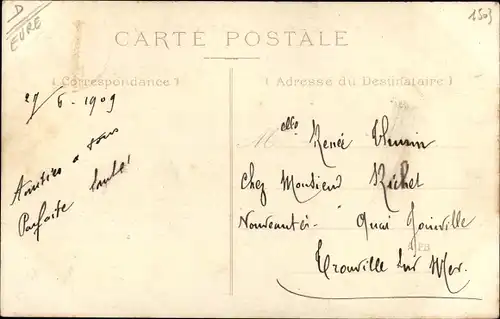 D
EURE
1503
CARTE POSTALE
(Correspondance)
(Adresse du Destinataire)
27/6-1909
Amitiés a tous
Parfaite Santé!
Melle Renée
Chez Monsieur Richet
Nouveautés. Quai Joinville
Trouville Sur Mer.